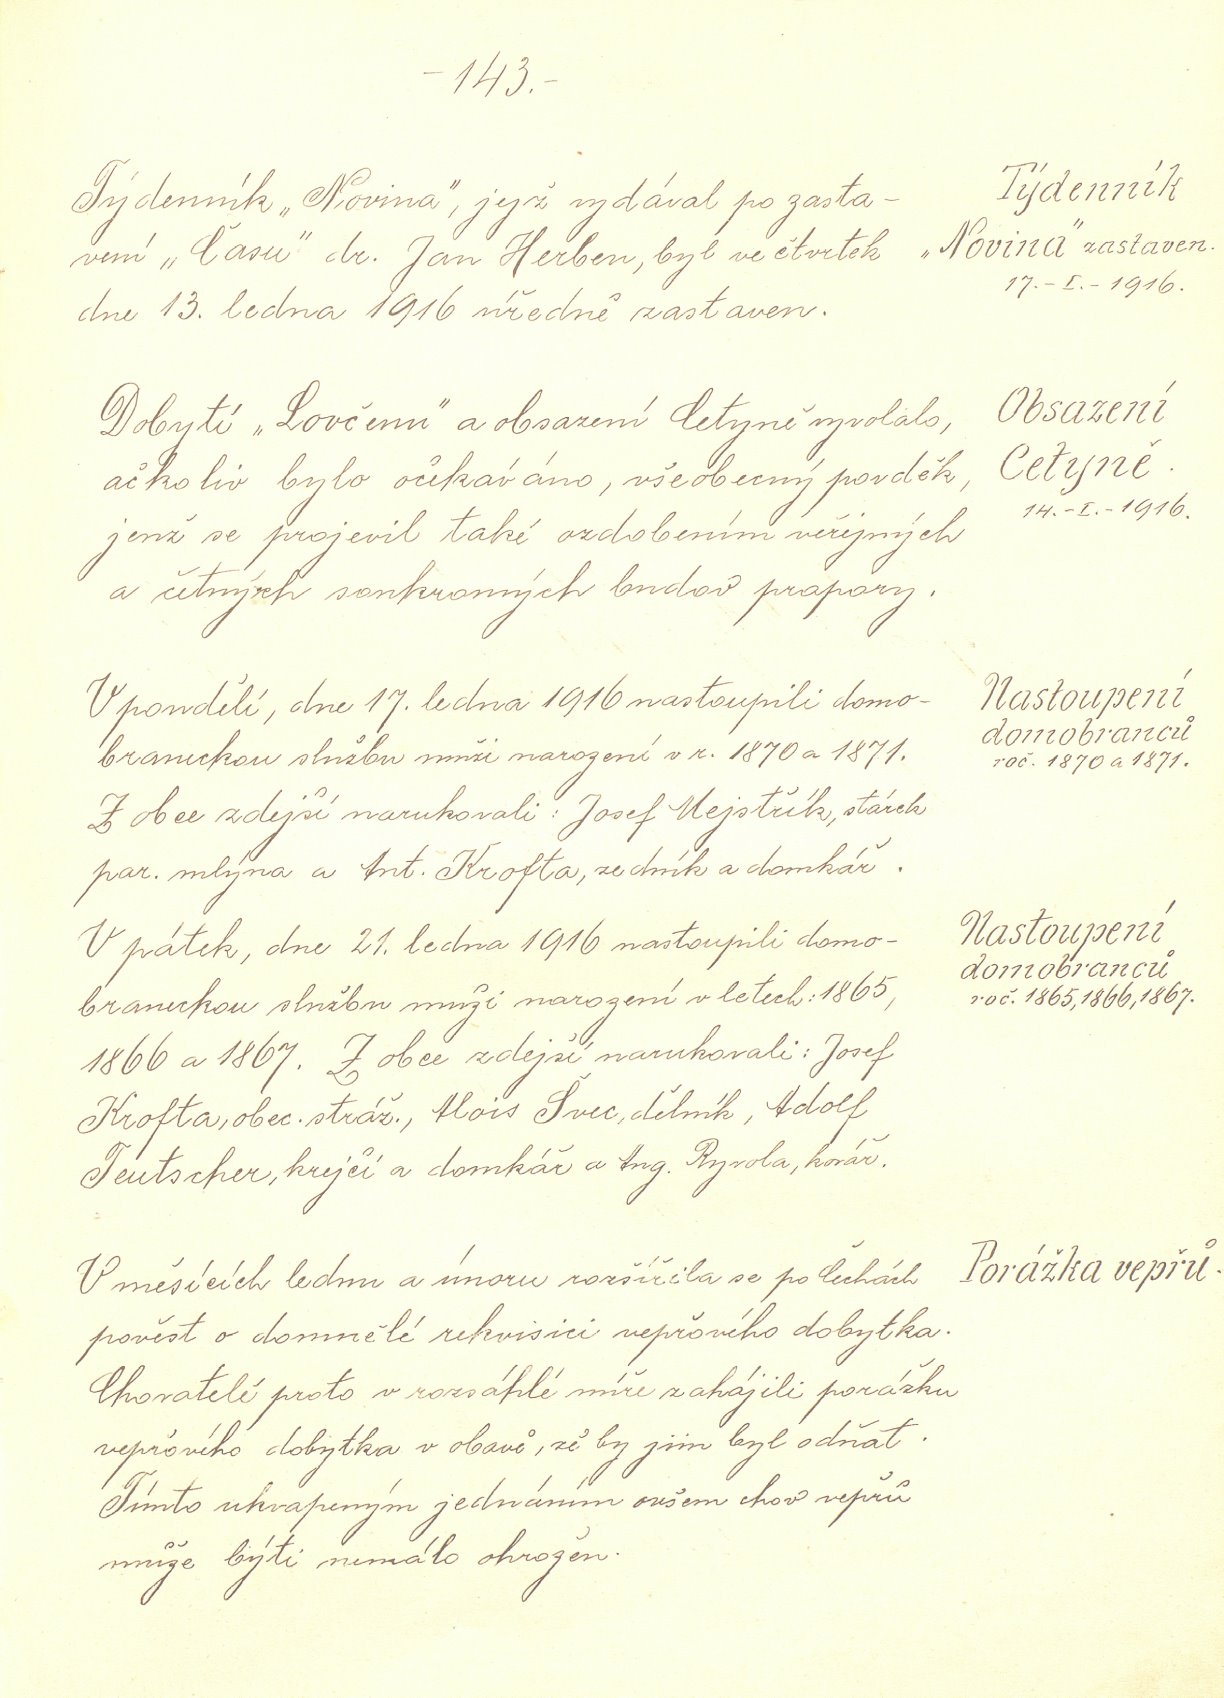 - 143. -
Týdenník „Novina", jejž vydával po zasta-
vení „Času" dr. Jan Herben, byl ve čtvrtek
dne 13. ledna 1916 úředně zastaven.
Týdenník
„Novina" zastaven.
17.-I.-1916.
Dobytí „Lovčenu" a obsazení Cetyně vyvolalo,
ačkoliv bylo očekáváno, všeobecný povděk,
jenž se projevil také ozdobením veřejných
a četných soukromých budov prapory.
Obsazení
Cetyně.
14.-I.-1916.
V pondělí, dne 17. ledna 1916 nastoupili domo-
braneckou službu muži narození v r. 1870 a 1871.
Z obce zdejší narukovali: Josef Mejstřík, stárek
par. mlýna a Ant. Krofta, zedník a domkář.
Nastoupení
domobranců
roč. 1870 a 1871.
V pátek, dne 21. ledna 1916 nastoupili domo-
braneckou službu muži narození v letech: 1865,
1866 a 1867. Z obce zdejší narukovali: Josef
Krofta, obec. stráž., Alois Švec, dělník, Adolf
Teutscher, krejčí a domkář a Aug. Ryvola, kovář.
Nastoupení
domobranců
roč. 1865, 1866, 1867.
V měsících lednu a únoru rozšířila se po Čechách
pověst o domnělé rekvisici vepřového dobytka.
Chovatelé proto v rozsáhlé míře zahájili porážku
vepřového dobytka v obavě, že by jim byl odňat.
Tímto ukvapeným jednáním ovšem chov vepřů
může býti nemálo ohrožen.
Porážka vepřů.